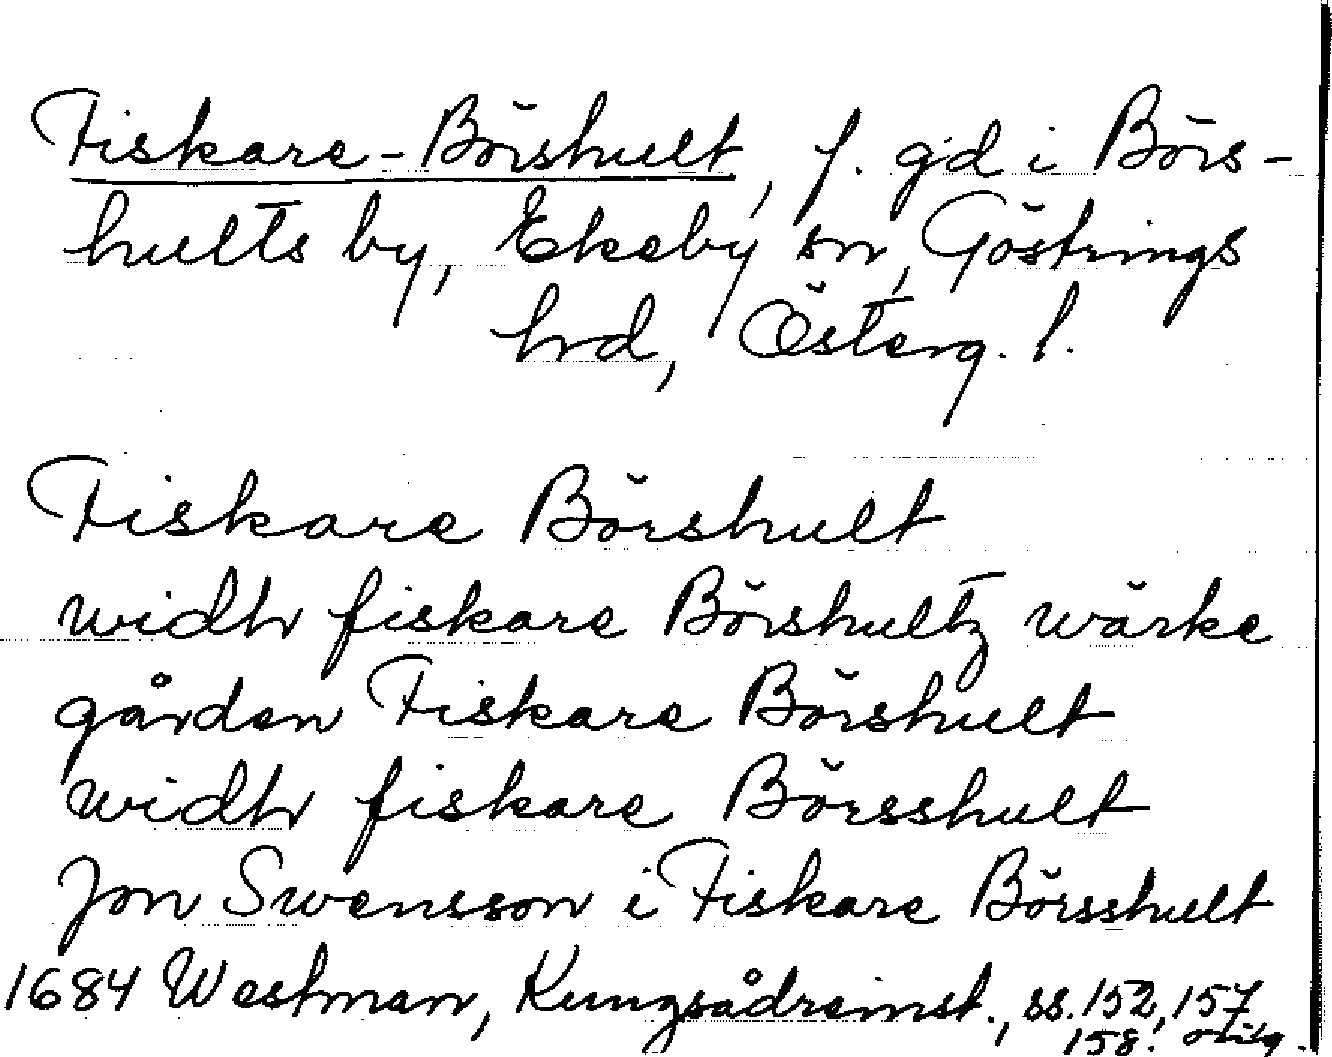 Fiskare-Börshult, f. gd i Börs-
hults by, Ekeby sn, Göstrings
hrd, Österg. l.
Fiskare Börshult
widh fiskare Börshultz wärke
gården Fiskare Börshult
widh fiskare Börsshult
Jon Swensson i Fiskare Börsshult
1684 Westman, Kungsådreinst., ss. 152, 157
158. orig.